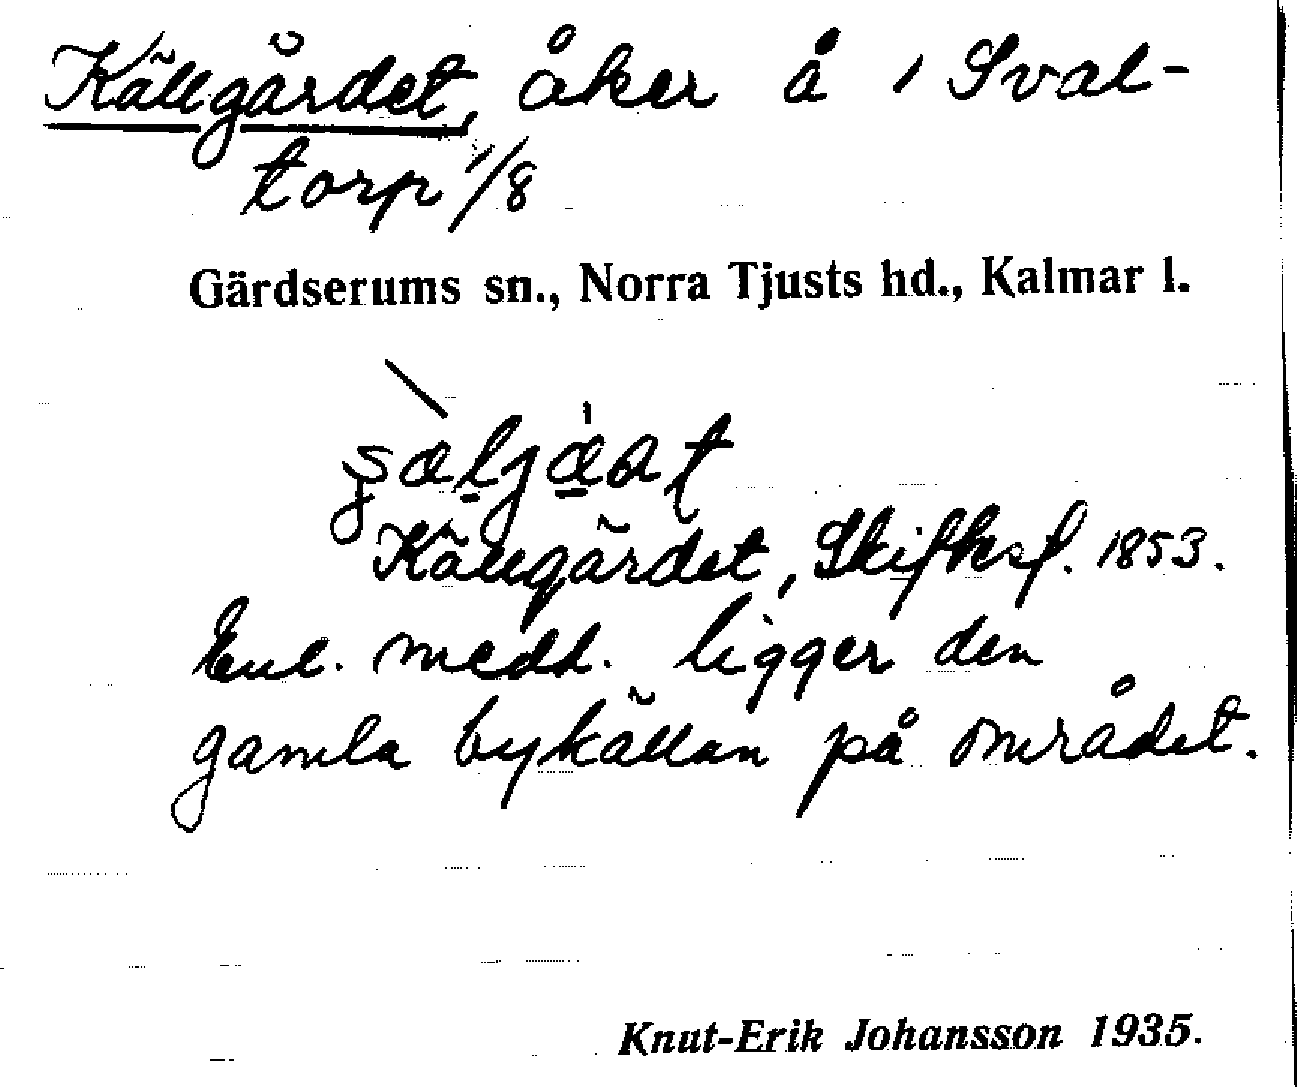 Källgärdet, åker å 1 Sval-
torp 1/8
Gärdserums sn., Norra Tjusts hd., Kalmar l.
Källgärdet, Skifksf. 1853.
Enl. medd. ligger den
gamla bykällan på området.
Knut-Erik Johansson 1935.